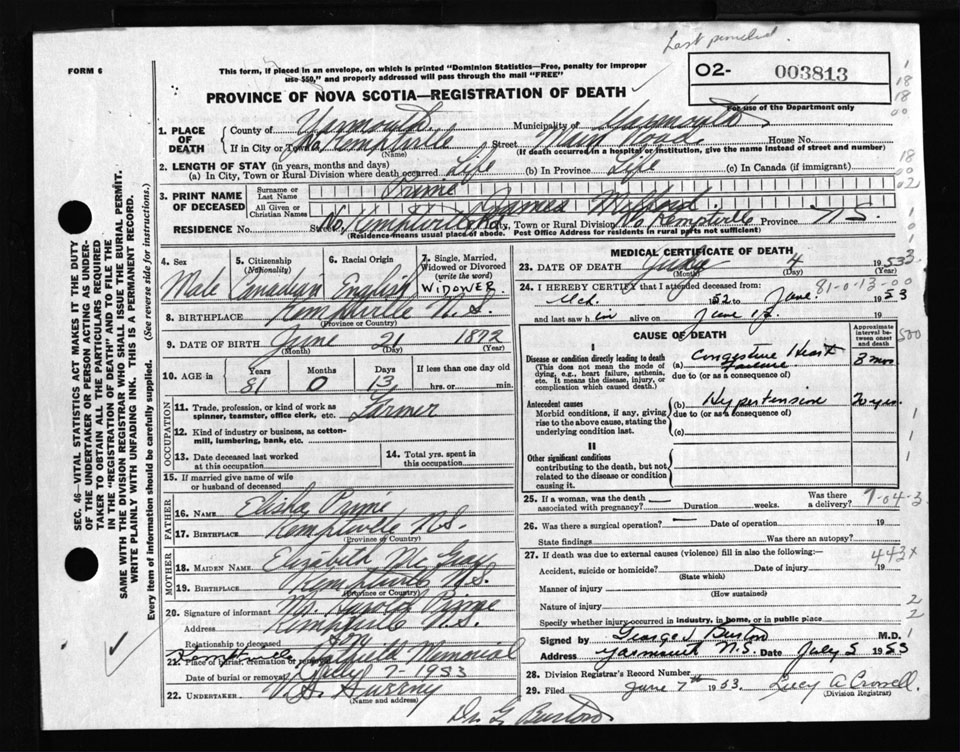 Last pencilled
FORM 6
This form, if placed in an envelope, on which is printed "Dominion Statistics—Free, penalty for improper
use $50," and properly addressed will pass through the mail "FREE"
02- 003813
For use of the Department only
PROVINCE OF NOVA SCOTIA—REGISTRATION OF DEATH
1. PLACE OF DEATH
County of Yarmouth Municipality of Yarmouth
If in City or Town No. Kemptville Street House No.
(Name) (If death occurred in a hospital or institution, give the name instead of street and number)
2. LENGTH OF STAY (in years, months and days)
(a) In City, Town or Rural Division where death occurred Life (b) In Province Life (c) In Canada (if immigrant)
3. PRINT NAME OF DECEASED
Surname or Last Name Prime
All Given or Christian Names James Milford
RESIDENCE No. Street No. Kemptville Rd City, Town or Rural Division No. Kemptville Province N.S.
(Residence means usual place of abode. Post Office Address for residents in rural parts not sufficient)
4. Sex Male
5. Citizenship (Nationality) Canadian
6. Racial Origin English
7. Single, Married, Widowed or Divorced (write the word) WIDOWER
8. BIRTHPLACE Kemptville N.S.
(Province or Country)
9. DATE OF BIRTH June 21 1872
(Month) (Day) (Year)
10. AGE in Years 81 Months 0 Days 13 If less than one day old
hrs. or min.
OCCUPATION
11. Trade, profession, or kind of work as spinner, teamster, office clerk, etc. Farmer
12. Kind of industry or business, as cotton-mill, lumbering, bank, etc.
13. Date deceased last worked at this occupation
14. Total yrs. spent in this occupation
15. If married give name of wife or husband of deceased
FATHER
16. Name Elisha Prime
17. Birthplace Kemptville N.S.
(Province or Country)
MOTHER
18. Maiden Name Elizabeth McGray
19. Birthplace Kemptville N.S.
(Province or Country)
20. Signature of informant Mr. Harold Prime
Address Kemptville N.S.
Relationship to deceased Son
21. Place of burial, cremation or removal Memorial
Date of burial or removal July 7 - 1953
22. UNDERTAKER V.S. Sweeny
(Name and address)
Dr. G. Burton
MEDICAL CERTIFICATE OF DEATH
23. DATE OF DEATH July 4 1953
(Month) (Day) (Year)
81-0-13-00
24. I HEREBY CERTIFY that I attended deceased from
Mch. 1952 to June 1953
and last saw him alive on June 17
CAUSE OF DEATH
Approximate interval between onset and death
I
Disease or condition directly leading to death
(This does not mean the mode of dying, e.g., heart failure, asthenia, etc. It means the disease, injury, or complication which caused death.)
(a) Congestive Heart Failure 8 mos
due to (or as a consequence of)
Antecedent causes
Morbid conditions, if any, giving rise to the above cause, stating the underlying condition last.
(b) Hypertension 20 yrs.
due to (or as a consequence of)
(c)
II
Other significant conditions
contributing to the death, but not related to the disease or condition causing it.
25. If a woman, was the death associated with pregnancy? Duration weeks. Was there a delivery?
9-04-3
26. Was there a surgical operation? Date of operation 19
State findings Was there an autopsy?
27. If death was due to external causes (violence) fill in also the following:—
443X
Accident, suicide or homicide? Date of injury 19
(State which)
Manner of injury
(How sustained)
Nature of injury
Specify whether injury occurred in industry, in home, or in public place
Signed by George S Burton M.D.
Address Yarmouth N.S. Date July 5 1953
28. Division Registrar's Record Number
29. Filed June 7th 1953 Lucy A Crowell
(Division Registrar)
SEC. 46—VITAL STATISTICS ACT MAKES IT THE DUTY
OF THE UNDERTAKER OR PERSON ACTING AS UNDER-
TAKER TO OBTAIN ALL THE PARTICULARS REQUIRED
IN THE "REGISTRATION OF DEATH" AND TO FILE THE
SAME WITH THE DIVISION REGISTRAR WHO SHALL ISSUE THE BURIAL PERMIT.
WRITE PLAINLY WITH UNFADING INK. THIS IS A PERMANENT RECORD.
Every item of information should be carefully supplied. (See reverse side for instructions.)